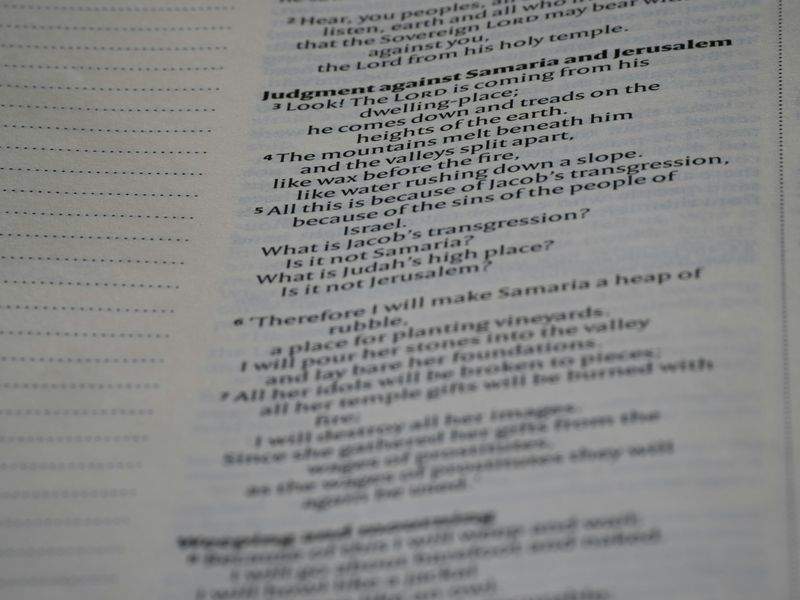 2 Hear, you peoples, all
listen, earth and all who
that the Sovereign LORD may bear
against you,
the Lord from his holy temple.
Judgment against Samaria and Jerusalem
3 Look! The LORD is coming from his
dwelling-place;
he comes down and treads on the
heights of the earth.
4 The mountains melt beneath him
and the valleys split apart,
like wax before the fire,
like water rushing down a slope.
5 All this is because of Jacob's transgression,
because of the sins of the people of
Israel.
What is Jacob's transgression?
Is it not Samaria?
What is Judah's high place?
Is it not Jerusalem?
6 'Therefore I will make Samaria a heap of
rubble,
a place for planting vineyards.
I will pour her stones into the valley
and lay bare her foundations.
7 All her idols will be broken to pieces;
all her temple gifts will be burned with
fire;
I will destroy all her images.
Since she gathered her gifts from the
wages of prostitutes,
as the wages of prostitutes they will
again be used.'
Weeping and mourning
8 Because of this I will weep and wail;
I will go about barefoot and naked.
I will howl like a jackal
like an owl.